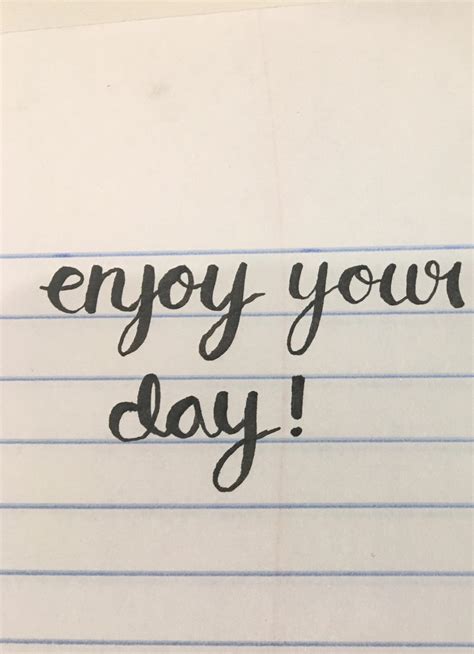 enjoy your
day!